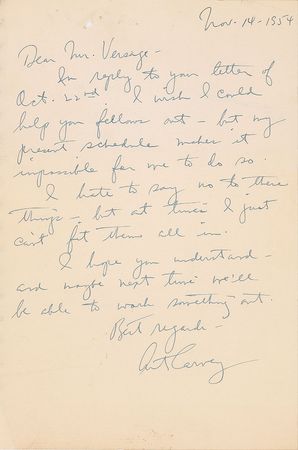 Nov. 14 - 1954
Dear Mr. Versage -
In reply to your letter of
Oct. 22nd. I wish I could
help you fellows out - but my
present schedule makes it
impossible for me to do so.
I hate to say no to these
things - but at times I just
can't fit them all in.
I hope you understand -
and maybe next time we'll
be able to work something out.
Best regards -
Art Carney